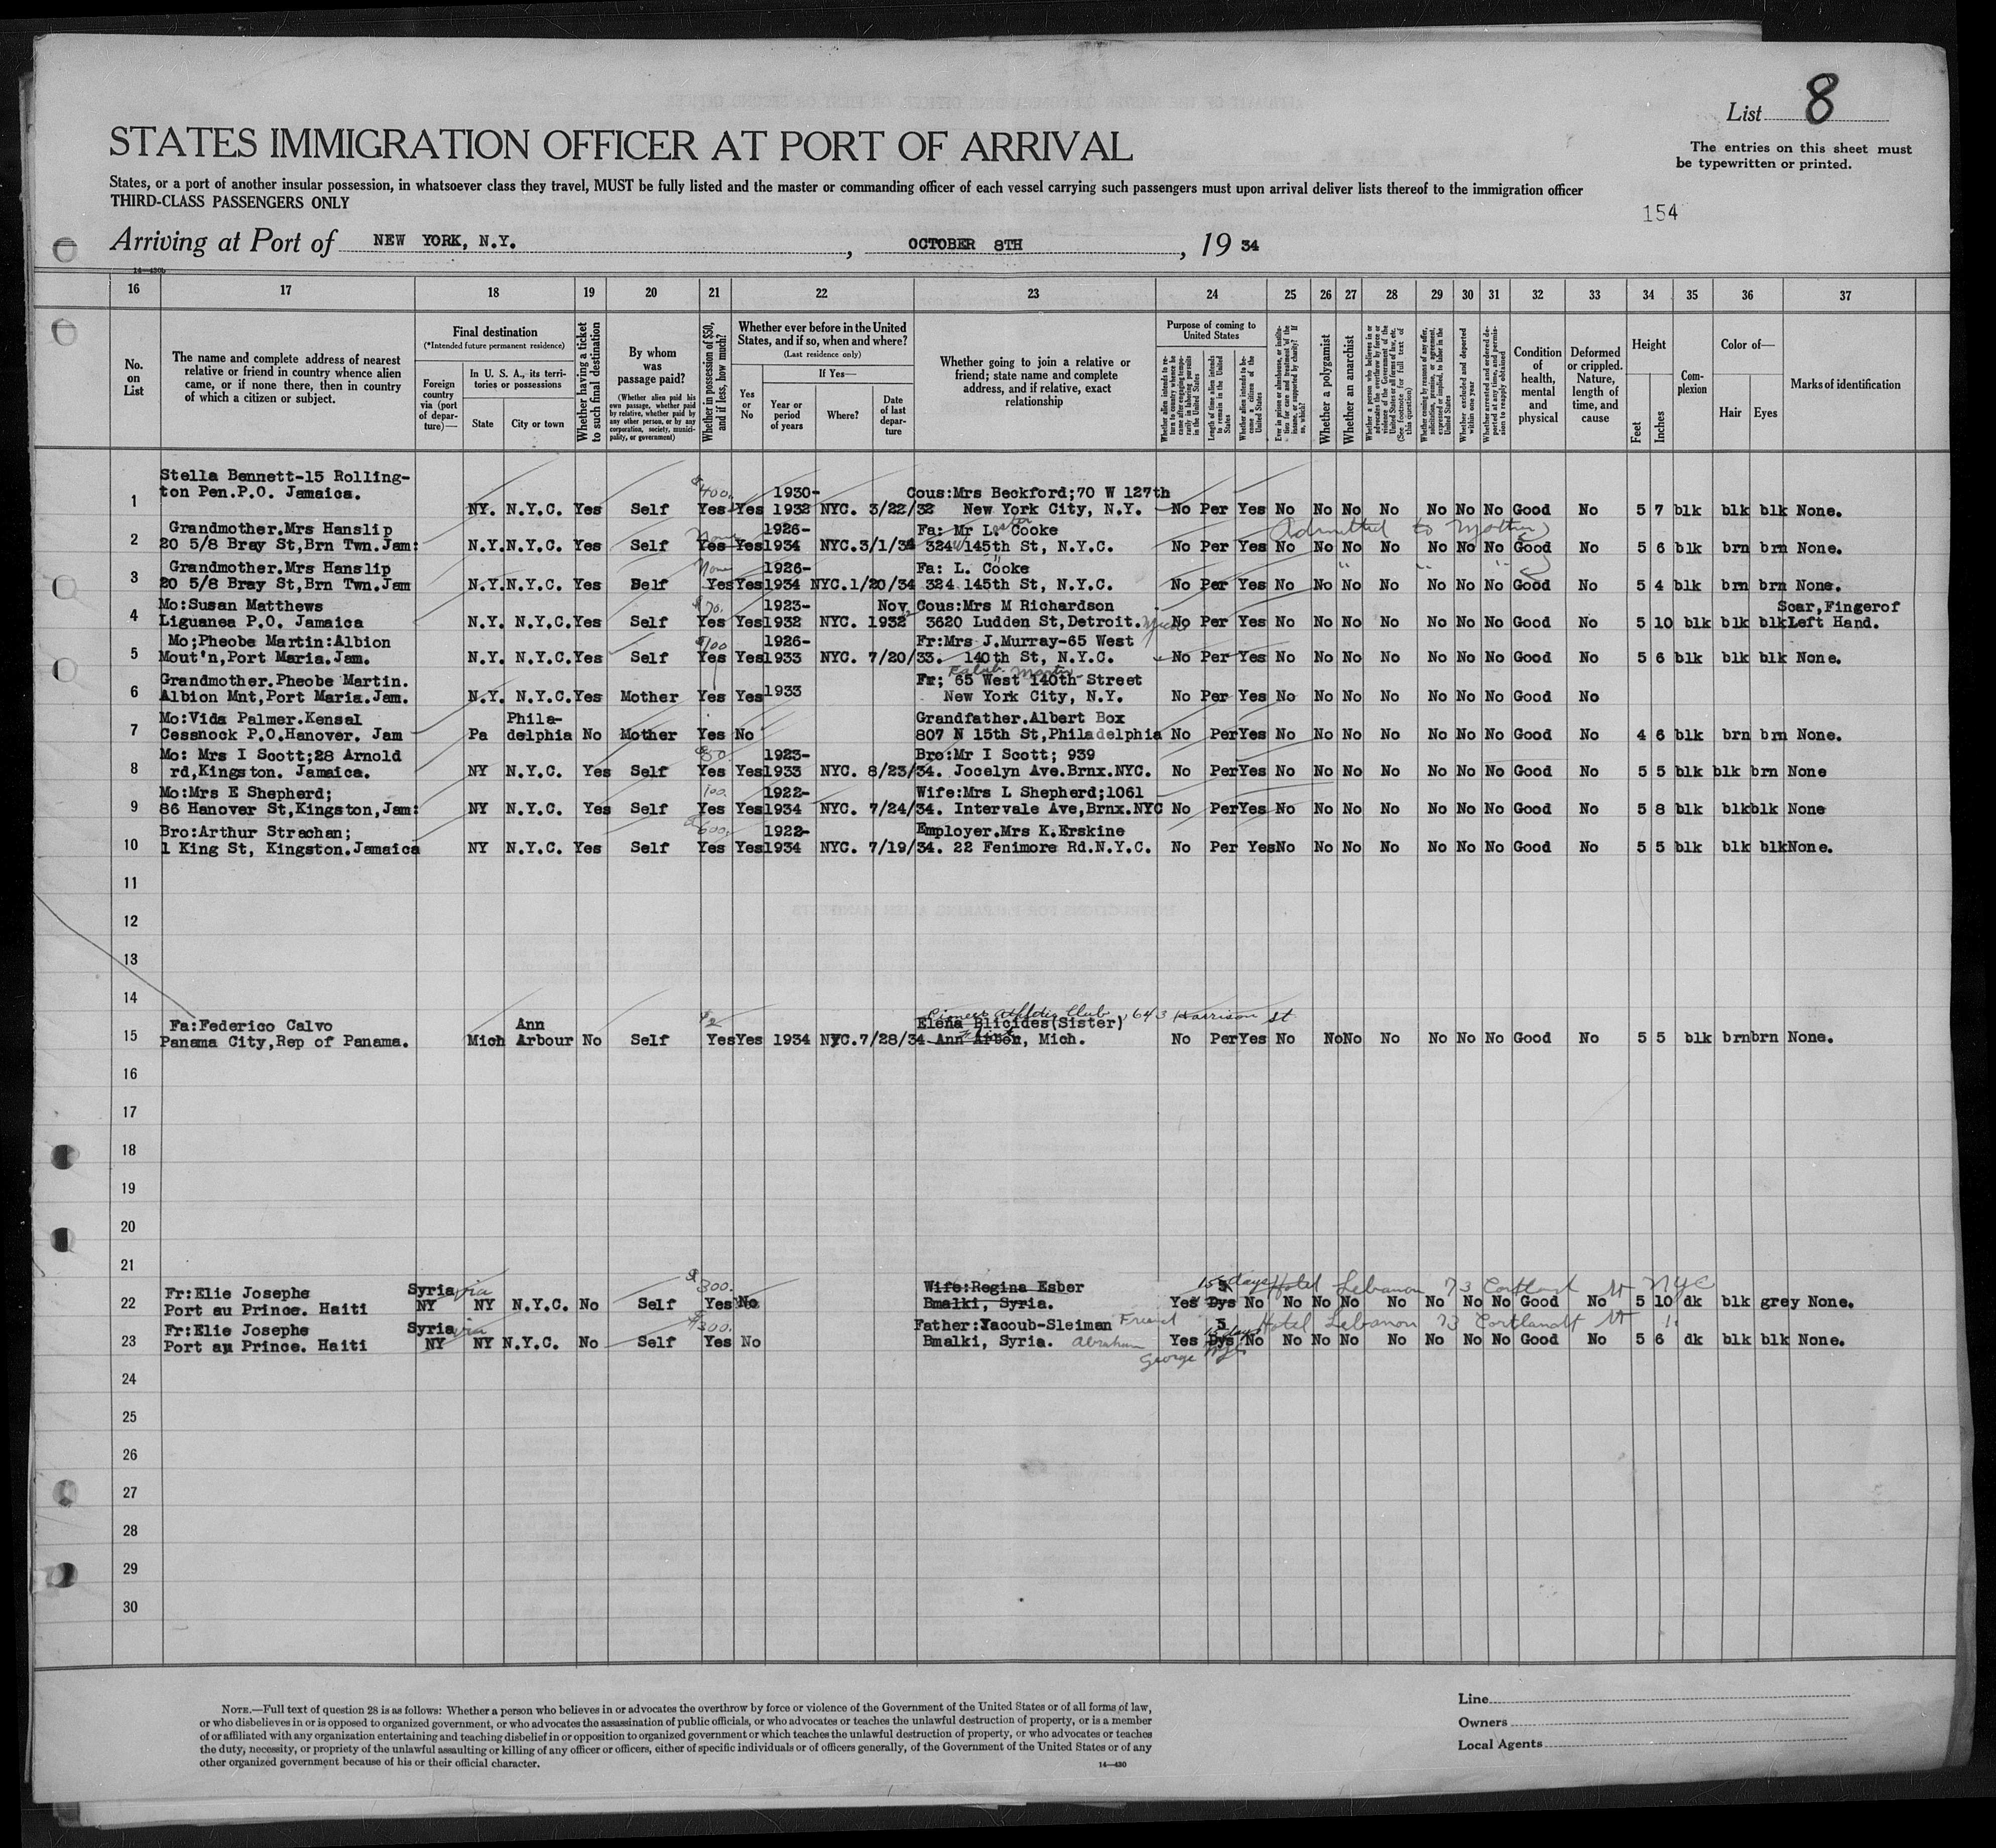 List 8
STATES IMMIGRATION OFFICER AT PORT OF ARRIVAL
The entries on this sheet must
be typewritten or printed.
States, or a port of another insular possession, in whatsoever class they travel, MUST be fully listed and the master or commanding officer of each vessel carrying such passengers must upon arrival deliver lists thereof to the immigration officer
THIRD-CLASS PASSENGERS ONLY
154
Arriving at Port of NEW YORK, N.Y. , OCTOBER 8TH , 19 34
14—430b
16 17 18 19 20 21 22 23 24 25 26 27 28 29 30 31 32 33 34 35 36 37
No. on List
The name and complete address of nearest relative or friend in country whence alien came, or if none there, then in country of which a citizen or subject.
Final destination
(*Intended future permanent residence)
Foreign country via (port of departure)—
In U. S. A., its territories or possessions
State
City or town
Whether having a ticket to such final destination
By whom was passage paid?
(Whether alien paid his own passage, whether paid by relative, whether paid by any other person, or by any corporation, society, municipality, or government)
Whether in possession of $50, and if less, how much?
Whether ever before in the United States, and if so, when and where?
(Last residence only)
Yes or No
If Yes—
Year or period of years
Where?
Date of last departure
Whether going to join a relative or friend; state name and complete address, and if relative, exact relationship
Purpose of coming to United States
Whether alien intends to return to country whence he came after engaging temporarily in laboring pursuits in the United States
Length of time alien intends to remain in the United States
Whether alien intends to become a citizen of the United States
Ever in prison or almshouse, or institution for care and treatment of the insane, or supported by charity? If so, which?
Whether a polygamist
Whether an anarchist
Whether a person who believes in or advocates the overthrow by force or violence of the Government of the United States or all forms of law, etc. (See footnote for full text of this question)
Whether coming by reason of any offer, solicitation, promise, or agreement, expressed or implied, to labor in the United States
Whether excluded and deported within one year
Whether arrested and ordered deported at any time, and permission to reapply obtained
Condition of health, mental and physical
Deformed or crippled. Nature, length of time, and cause
Height
Feet
Inches
Complexion
Color of—
Hair Eyes
Marks of identification
Stella Bennett-15 Rolling- $400. 1930- Cous:Mrs Beckford;70 W 127th
1 ton Pen.P.O. Jamaica. NY. N.Y.C. Yes Self Yes Yes 1932 NYC. 3/22/32 New York City, N.Y. No Per Yes No No No No No No No Good No 5 7 blk blk blk None.
Grandmother.Mrs Hanslip None 1926- Fa: Mr L. Cooke Admitted to Mother
2 20 5/8 Bray St,Brn Twn.Jam: N.Y. N.Y.C. Yes Self Yes Yes 1934 NYC. 3/1/34 324 145th St, N.Y.C. No Per Yes No No No No No No No Good No 5 6 blk brn brn None.
Grandmother.Mrs Hanslip None 1926- Fa: L. Cooke " " "
3 20 5/8 Bray St,Brn Twn.Jam N.Y. N.Y.C. Yes Self Yes Yes 1934 NYC. 1/20/34 324 145th St, N.Y.C. No Per Yes No No No No No No No Good No 5 4 blk brn brn None.
Mo:Susan Matthews $70. 1923- Nov Cous:Mrs M Richardson Scar,Fingerof
4 Liguanea P.O. Jamaica N.Y. N.Y.C. Yes Self Yes Yes 1932 NYC. 1932 3620 Ludden St,Detroit. No Per Yes No No No No No No No Good No 5 10 blk blk blk Left Hand.
Mo;Pheobe Martin:Albion $100 1926- Fr:Mrs J.Murray-65 West
5 Mout'n,Port Maria.Jam. N.Y. N.Y.C. Yes Self Yes Yes 1933 NYC. 7/20/33. 140th St, N.Y.C. No Per Yes No No No No No No No Good No 5 6 blk blk blk None.
Grandmother.Pheobe Martin. Fr; 65 West 140th Street
6 Albion Mnt,Port Maria.Jam. N.Y. N.Y.C. Yes Mother Yes Yes 1933 New York City, N.Y. No Per Yes No No No No No No No Good No
Mo:Vida Palmer.Kensal Phila- Grandfather.Albert Box
7 Cessnock P.O.Hanover. Jam Pa delphia No Mother Yes No 807 N 15th St,Philadelphia No Per Yes No No No No No No No Good No 4 6 blk brn brn None.
Mo: Mrs I Scott;28 Arnold $50. 1923- Bro:Mr I Scott; 939
8 rd,Kingston. Jamaica. NY N.Y.C. Yes Self Yes Yes 1933 NYC. 8/23/34. Jocelyn Ave.Brnx.NYC. No Per Yes No No No No No No No Good No 5 5 blk blk brn None
Mo:Mrs E Shepherd; 100. 1922- Wife:Mrs L Shepherd;1061
9 86 Hanover St,Kingston,Jam: NY N.Y.C. Yes Self Yes Yes 1934 NYC. 7/24/34. Intervale Ave,Brnx.NYC No Per Yes No No No No No No No Good No 5 8 blk blk blk None
Bro:Arthur Strachan; $600. 1922- Employer.Mrs K.Erskine
10 1 King St, Kingston.Jamaica NY N.Y.C. Yes Self Yes Yes 1934 NYC. 7/19/34. 22 Fenimore Rd.N.Y.C. No Per Yes No No No No No No No Good No 5 5 blk blk blk None.
11
12
13
14
Club, 643 Harrison St
Fa:Federico Calvo Ann $2 Elena Blicides(Sister)
15 Panama City,Rep of Panama. Mich Arbour No Self Yes Yes 1934 NYC. 7/28/34 Ann Arbor, Mich. No Per Yes No No No No No No No Good No 5 5 blk brn brn None.
16
17
18
19
20
21
Fr:Elie Josephe Syria via $300. Wife:Regina Esber 15 days Hotel Lebanon 73 Cortland St NYC
22 Port au Prince. Haiti NY NY N.Y.C. No Self Yes No Bmalki, Syria. Yes 5 Dys No No No No No No No No Good No 5 10 dk blk grey None.
Fr:Elie Josephe Syria via $300. Father:Yacoub-Sleiman Friend Hotel Lebanon 73 Cortlandt St "
23 Port au Prince. Haiti NY NY N.Y.C. No Self Yes No Bmalki, Syria. Abraham George Yes 5 Dys No No No No No No No No Good No 5 6 dk blk blk None.
24
25
26
27
28
29
30
NOTE.—Full text of question 28 is as follows: Whether a person who believes in or advocates the overthrow by force or violence of the Government of the United States or of all forms of law,
or who disbelieves in or is opposed to organized government, or who advocates the assassination of public officials, or who advocates or teaches the unlawful destruction of property, or is a member
of or affiliated with any organization entertaining and teaching disbelief in or opposition to organized government or which teaches the unlawful destruction of property, or who advocates or teaches
the duty, necessity, or propriety of the unlawful assaulting or killing of any officer or officers, either of specific individuals or of officers generally, of the Government of the United States or of any
other organized government because of his or their official character.
14—430
Line
Owners
Local Agents